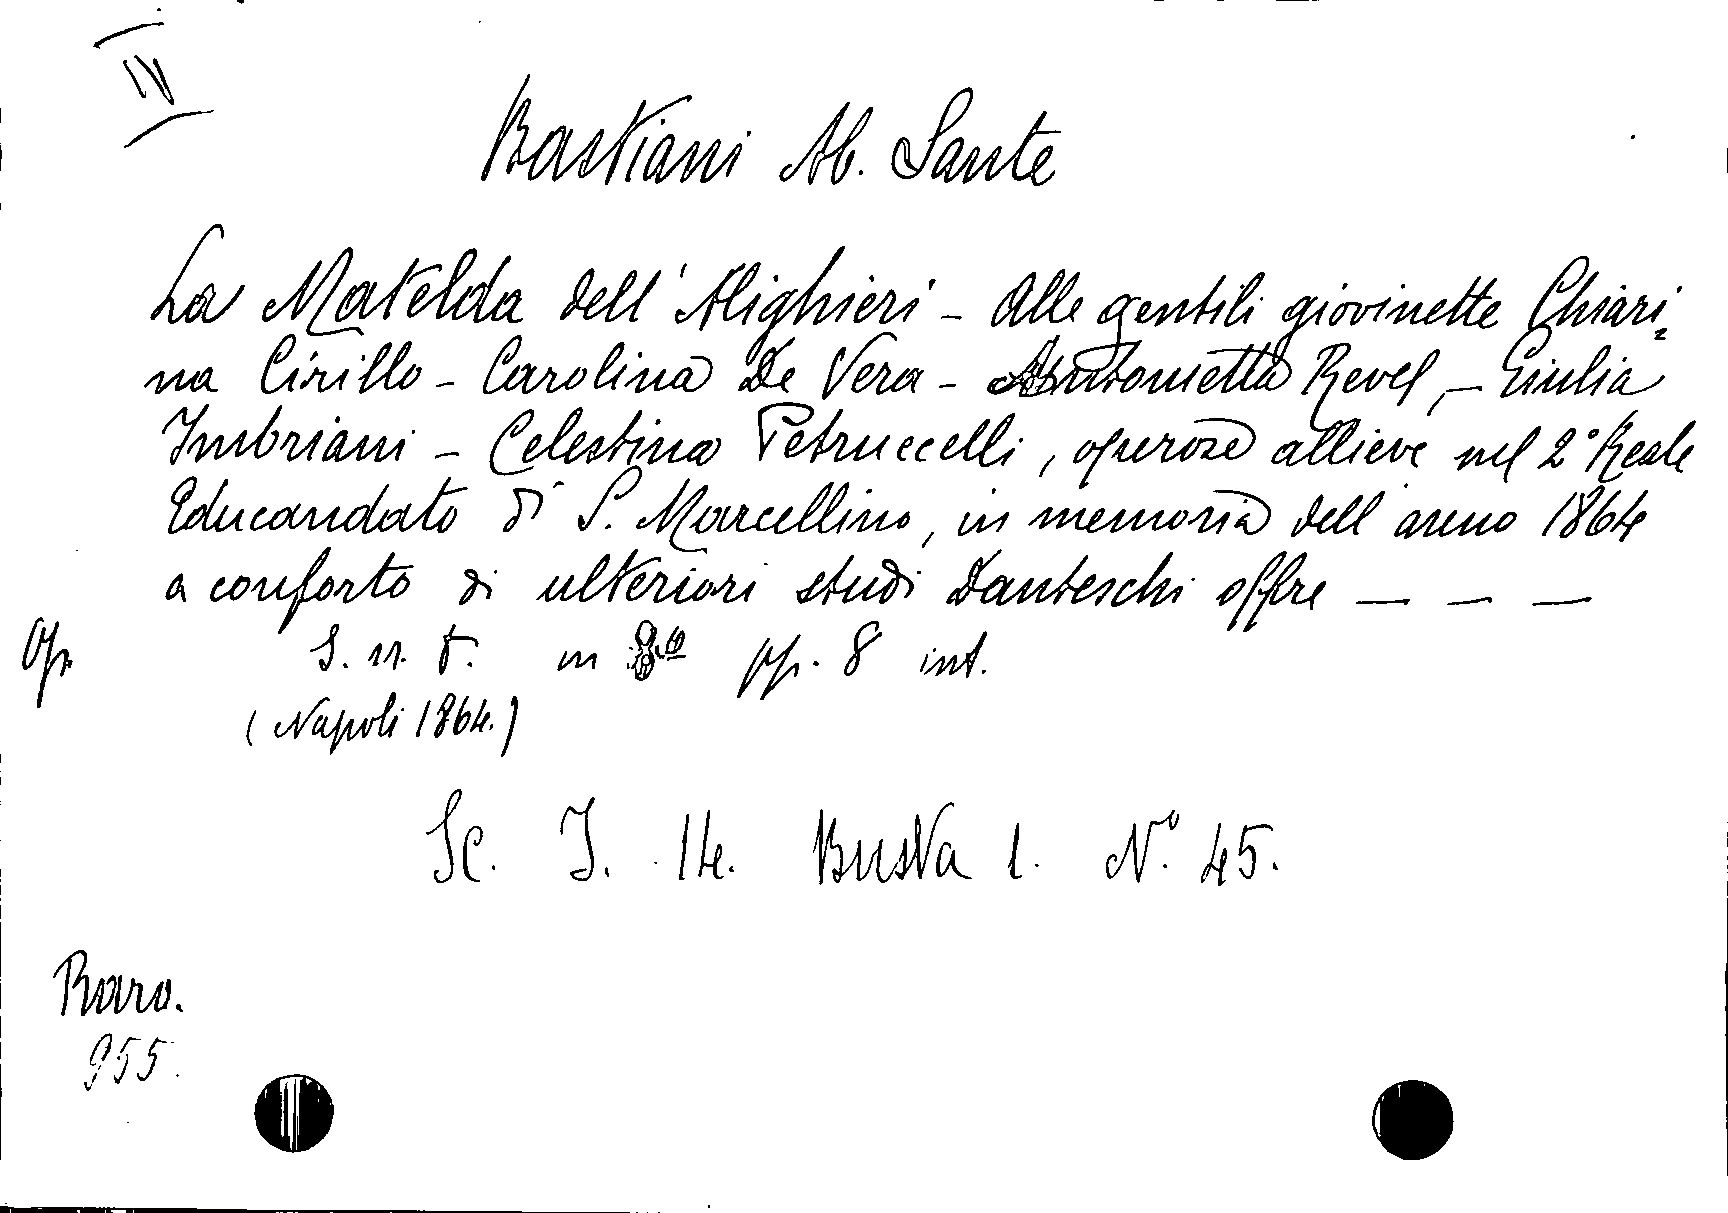 IV
Bastiani Ab. Sante
La Matelda dell'Alighieri - Alle gentili giovinette Chiari=
na Cirillo - Carolina De Vera - Antonietta Revel, - Giulia
Imbriani - Celestina Petruccelli, operose allieve nel 2° Reale
Educandato di S. Marcellino, in memoria dell anno 1864
a conforto di ulteriori studi Danteschi offre — — —
Op. S. n. t. in 8.° pp. 8 int.
(Napoli 1864.)
Sc. I. 14. Busta 1. N.° 45.
Raro.
955.